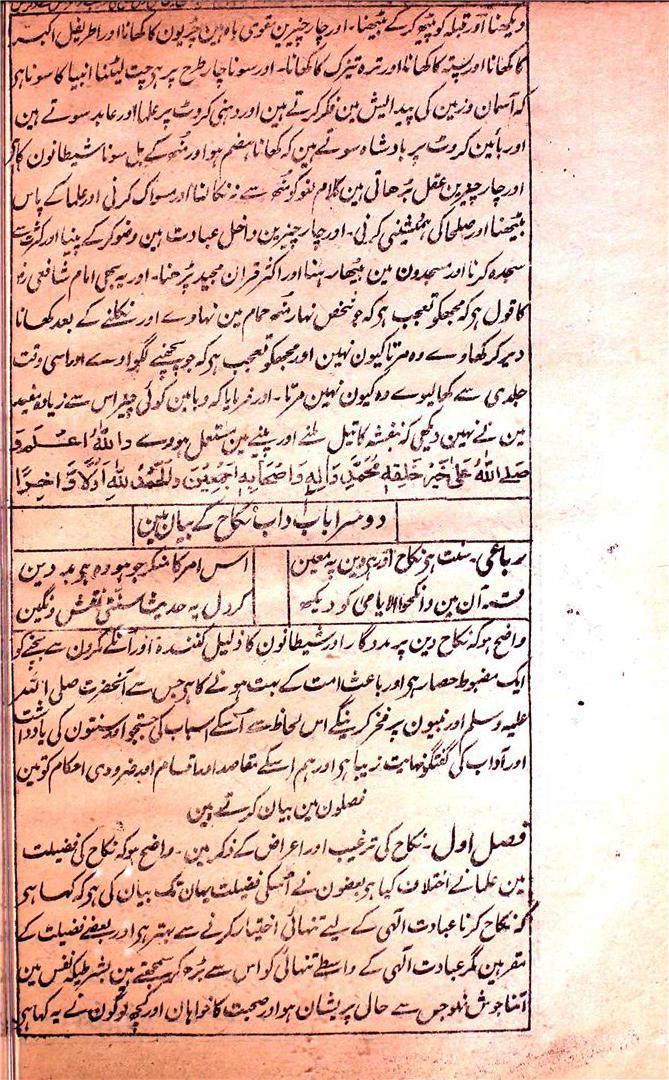 دیکھنا اور قبلہ کو پیٹھ کرکے بیٹھنا۔ اور چار چیزین مقوی باہ ہین چڑیون کا کھانا اور اطریفل اکبر
کا کھانا اور پستہ کا کھانا اور ترہ تیزک کا کھانا۔ اور سونا چار طرح پر ہی چت لیٹنا انبیا کا سونا ہی
کہ آسمان وزمین کی پیدایش مین فکر کرتے ہین اور دہنی کروٹ پر علما اور عابد سوتے ہین
اور بائین کروٹ پر بادشاہ سوتے ہین کہ کھانا ہضم ہو اور منھ کے بل سونا شیطانون کا ہی
اور چار چیزین عقل بڑھاتی ہین کلام لغو کو منھ سے نہ نکالنا اور مسواک کرنی اور علما کے پاس
بیٹھنا اور صلحا کی ہمنشینی کرنی۔ اور چار چیزین داخل عبادت ہین وضو کرکے پینا اور کثرت سے
سجدہ کرنا اور مسجدون مین بیٹھا رہنا اور اکثر قرآن مجید پڑھنا۔ اور یہ بھی امام شافعی رح
کا قول ہی کہ مجھکو تعجب ہی کہ جو شخص نہار منھ حمام مین نہاوے اور نکلنے کے بعد کھانا
دیر کر کھاوے وہ مرتا کیون نہین اور مجھکو تعجب ہی کہ جو پچھنے لگواوے اور اسی وقت
جلدی سے کھالیوے وہ کیون نہین مرتا۔ اور فرمایا کہ وبا مین کوئی چیز اس سے زیادہ مفید
مین نے نہین دیکھی کہ بنفشہ کا تیل ملنے اور پینے مین مستعمل ہووے واللہ اعلم و
صلے اللہ علی خیر خلقہ محمد والہ واصحابہ اجمعین والحمد للہ اولا واخرا
دوسرا باب آداب نکاح کے بیان مین
رباعی۔ سنت ہی نکاح اور ہی دین پہ معین اس امر کا منکر جو ہو وہ ہی بد دین
قرآن مین وانکحوا الایامی کو دیکھ کر دل پہ حدیث سنتی نقش و نگین
واضح ہو کہ نکاح دین پر مددگار اور شیطانون کا ذلیل کنندہ اور انکے مکرون سے بچنے کو
ایک مضبوط حصار ہی اور باعث امت کے بہت ہونے کا ہی جس سے آنحضرت صلی اللہ
علیہ وسلم اور نبیون پر فخر کرینگے اس لحاظ سے اسکے اسباب کی جستجو اور سنتون کی یادداشت
اور آداب کی گفتگو نہایت زیبا ہی اور ہم اسکے مقاصد اور اقسام اور ضروری احکام کو تین
فصلون مین بیان کرتے ہین
فصل اول۔ نکاح کی ترغیب اور اعراض کے ذکر مین۔ واضح ہو کہ نکاح کی فضیلت
مین علما نے اختلاف کیا ہی بعضون نے اسکی فضیلت یہان تک بیان کی ہی کہ کہا ہی
کہ نکاح کرنا عبادت الٰہی کے لیے تنہائی اختیار کرنے سے بہتر ہی اور بعضے فضیلت کے
مقر ہین مگر عبادت الٰہی کے واسطے تنہائی کو اس سے بڑھ کر سمجھتے ہین بشرطیکہ نفس مین
اتنا جوش نہو جس سے حال پریشان ہو اور صحبت کا خواہان اور کچھ لوگون نے یہ کہا ہی